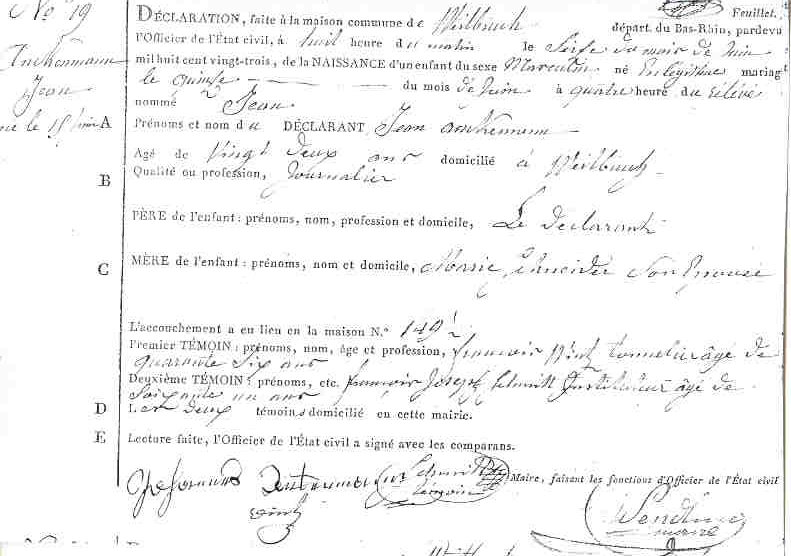 No 19
Feuillet.
DÉCLARATION, faite à la maison commune de Weilbach départ. du Bas-Rhin, pardevant
l'Officier de l'État civil, à huit heure du matin le Seise du mois de Juin
mil huit cent vingt-trois, de la NAISSANCE d'un enfant du sexe Masculin né En légitime mariage
le quinse du mois de Juin à quatre heure du
nommé Jean
Jean
né le 15 juin
A Prénoms et nom du DÉCLARANT Jean
Agé de Vingt Deux ans domicilié à Weilbach
B Qualité ou profession, Journalier
PÈRE de l'enfant : prénoms, nom, profession et domicile, Le Declarant
C MÈRE de l'enfant : prénoms, nom et domicile, Marie Schneider Son Epouse
L'accouchement a eu lieu en la maison N.° 149 ½
Premier TÉMOIN : prénoms, nom, âge et profession, françois Wint tonnelier âgé de
quarante Six ans
Deuxième TÉMOIN : prénoms, etc. françois Joseph Schmitt Instituteur âgé de
Soixante un ans
D Les Deux témoins domicilié en cette mairie.
E Lecture faite, l'Officier de l'État civil a signé avec les comparans.
Schmitt
témoin
Maire, faisant les fonctions d'Officier de l'État civil
maire